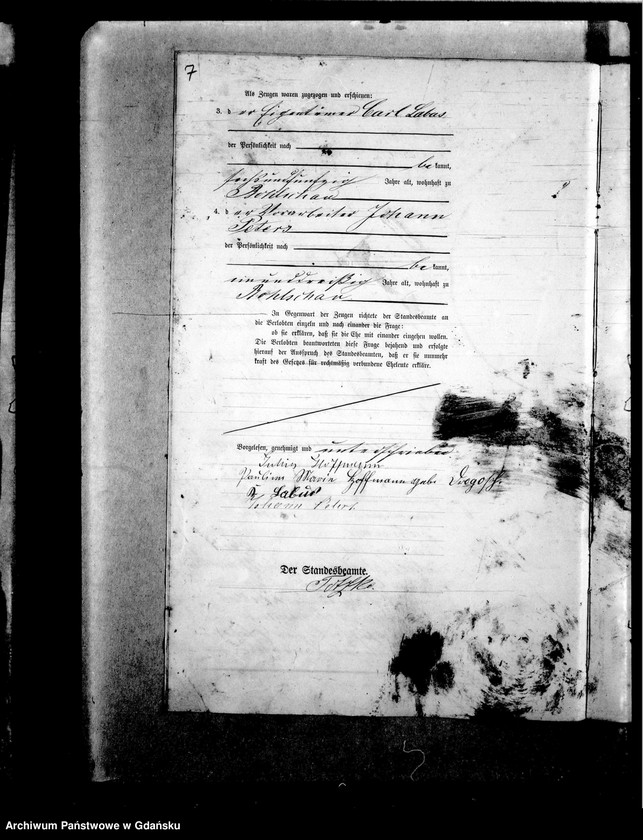 7
Als Zeugen waren zugezogen und erschienen:
3. der Eigentümer Carl Labas
der Persönlichkeit nach
be kannt,
sechsundfünfzig Jahre alt, wohnhaft zu
Bohlschau
4. der Vorarbeiter Johann
Peters
der Persönlichkeit nach
be kannt,
einunddreißig Jahre alt, wohnhaft zu
Bohlschau
In Gegenwart der Zeugen richtete der Standesbeamte an
die Verlobten einzeln und nach einander die Frage:
ob sie erklären, daß sie die Ehe mit einander eingehen wollen.
Die Verlobten beantworteten diese Frage bejahend und erfolgte
hierauf der Ausspruch des Standesbeamten, daß er sie nunmehr
kraft des Gesetzes für rechtmäßig verbundene Eheleute erkläre.
Vorgelesen, genehmigt und unterschrieben
Julius Hoffmann
Pauline Maria Hoffmann geb.
Labus
Johann Peters
Der Standesbeamte.
Archiwum Państwowe w Gdańsku